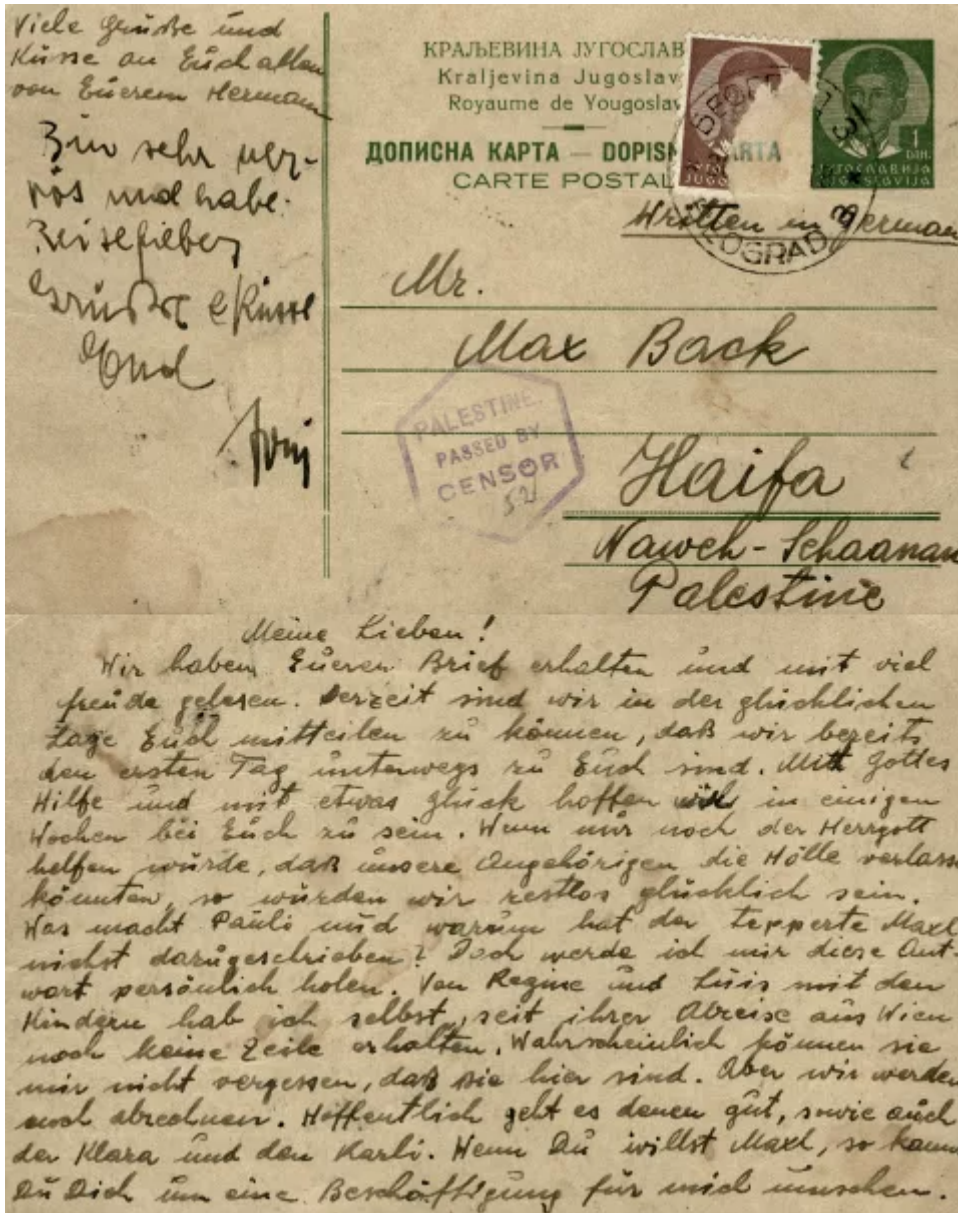 Viele Grüße und
Küsse an Euch allen
von Euerem Hermann
Bin sehr ner-
vös und habe
Reisefieber
Grüße & Küsse
КРАЉЕВИНА ЈУГОСЛАВ
Kraljevina Jugoslav
Royaume de Yougoslav
ДОПИСНА КАРТА — DOPISN ARTA
CARTE POSTAL
1
ДИН.
ЈУГОСЛАВИЈА
BEOGRAD 3
Written in German
Mr.
Max Back
PALESTINE.
PASSED BY
CENSOR
52
Haifa
Naweh-Schaanan
Palestine
Meine Lieben!
Wir haben Eueren Brief erhalten und mit viel
freude gelesen. Derzeit sind wir in der glücklichen
Lage Euch mitteilen zu können, daß wir bereits
den ersten Tag unterwegs zu Euch sind. Mitt Gottes
Hilfe und mit etwas glück hoffen wir in einigen
Wochen bei Euch zu sein. Wenn mir noch der Herrgott
helfen würde, daß unsere Angehörigen die Hölle verlass
könnten, so würden wir restlos glücklich sein.
Was macht Pauli und warum hat der tepperte Maxl
nichst dazugeschrieben? Doch werde ich mir diese Ant-
wort persönlich holen. Von Regine und Luis mit den
Kindern hab ich selbst, seit ihrer Abreise aus Wien
noch keine Zeile erhalten. Wahrscheinlich können sie
mir nicht vergessen, daß sie hier sind. Aber wir werden
noch abrechnen. Hoffentlich geht es denen gut, sowie auch
der Klara und den Karli. Wenn Du willst Maxl, so kann
Du Dich um eine Beschäftigung für mich umsehen.